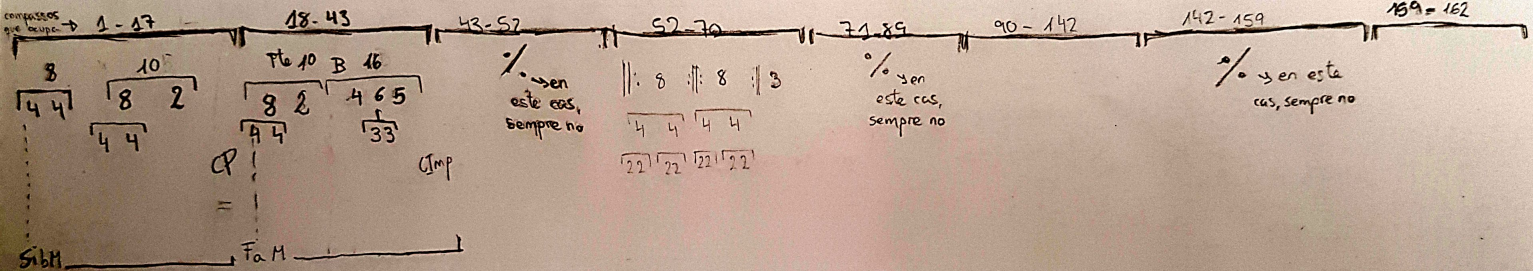 compassos
que ocupa → 1 - 17
18 - 43
43 - 52
52 - 70
71 - 89
90 - 142
142 - 159
159 - 162
8
4 4
10
8 2
4 4
Pte 10 B 16
8 2
4 6 5
4 4
33
CP
=
CImp
SibM
Fa M
% → en
este cas,
sempre no
||: 8 :||: 8 :|| 3
4 4 4 4
22 22 22 22
% → en
este cas,
sempre no
% → en este
cas, sempre no